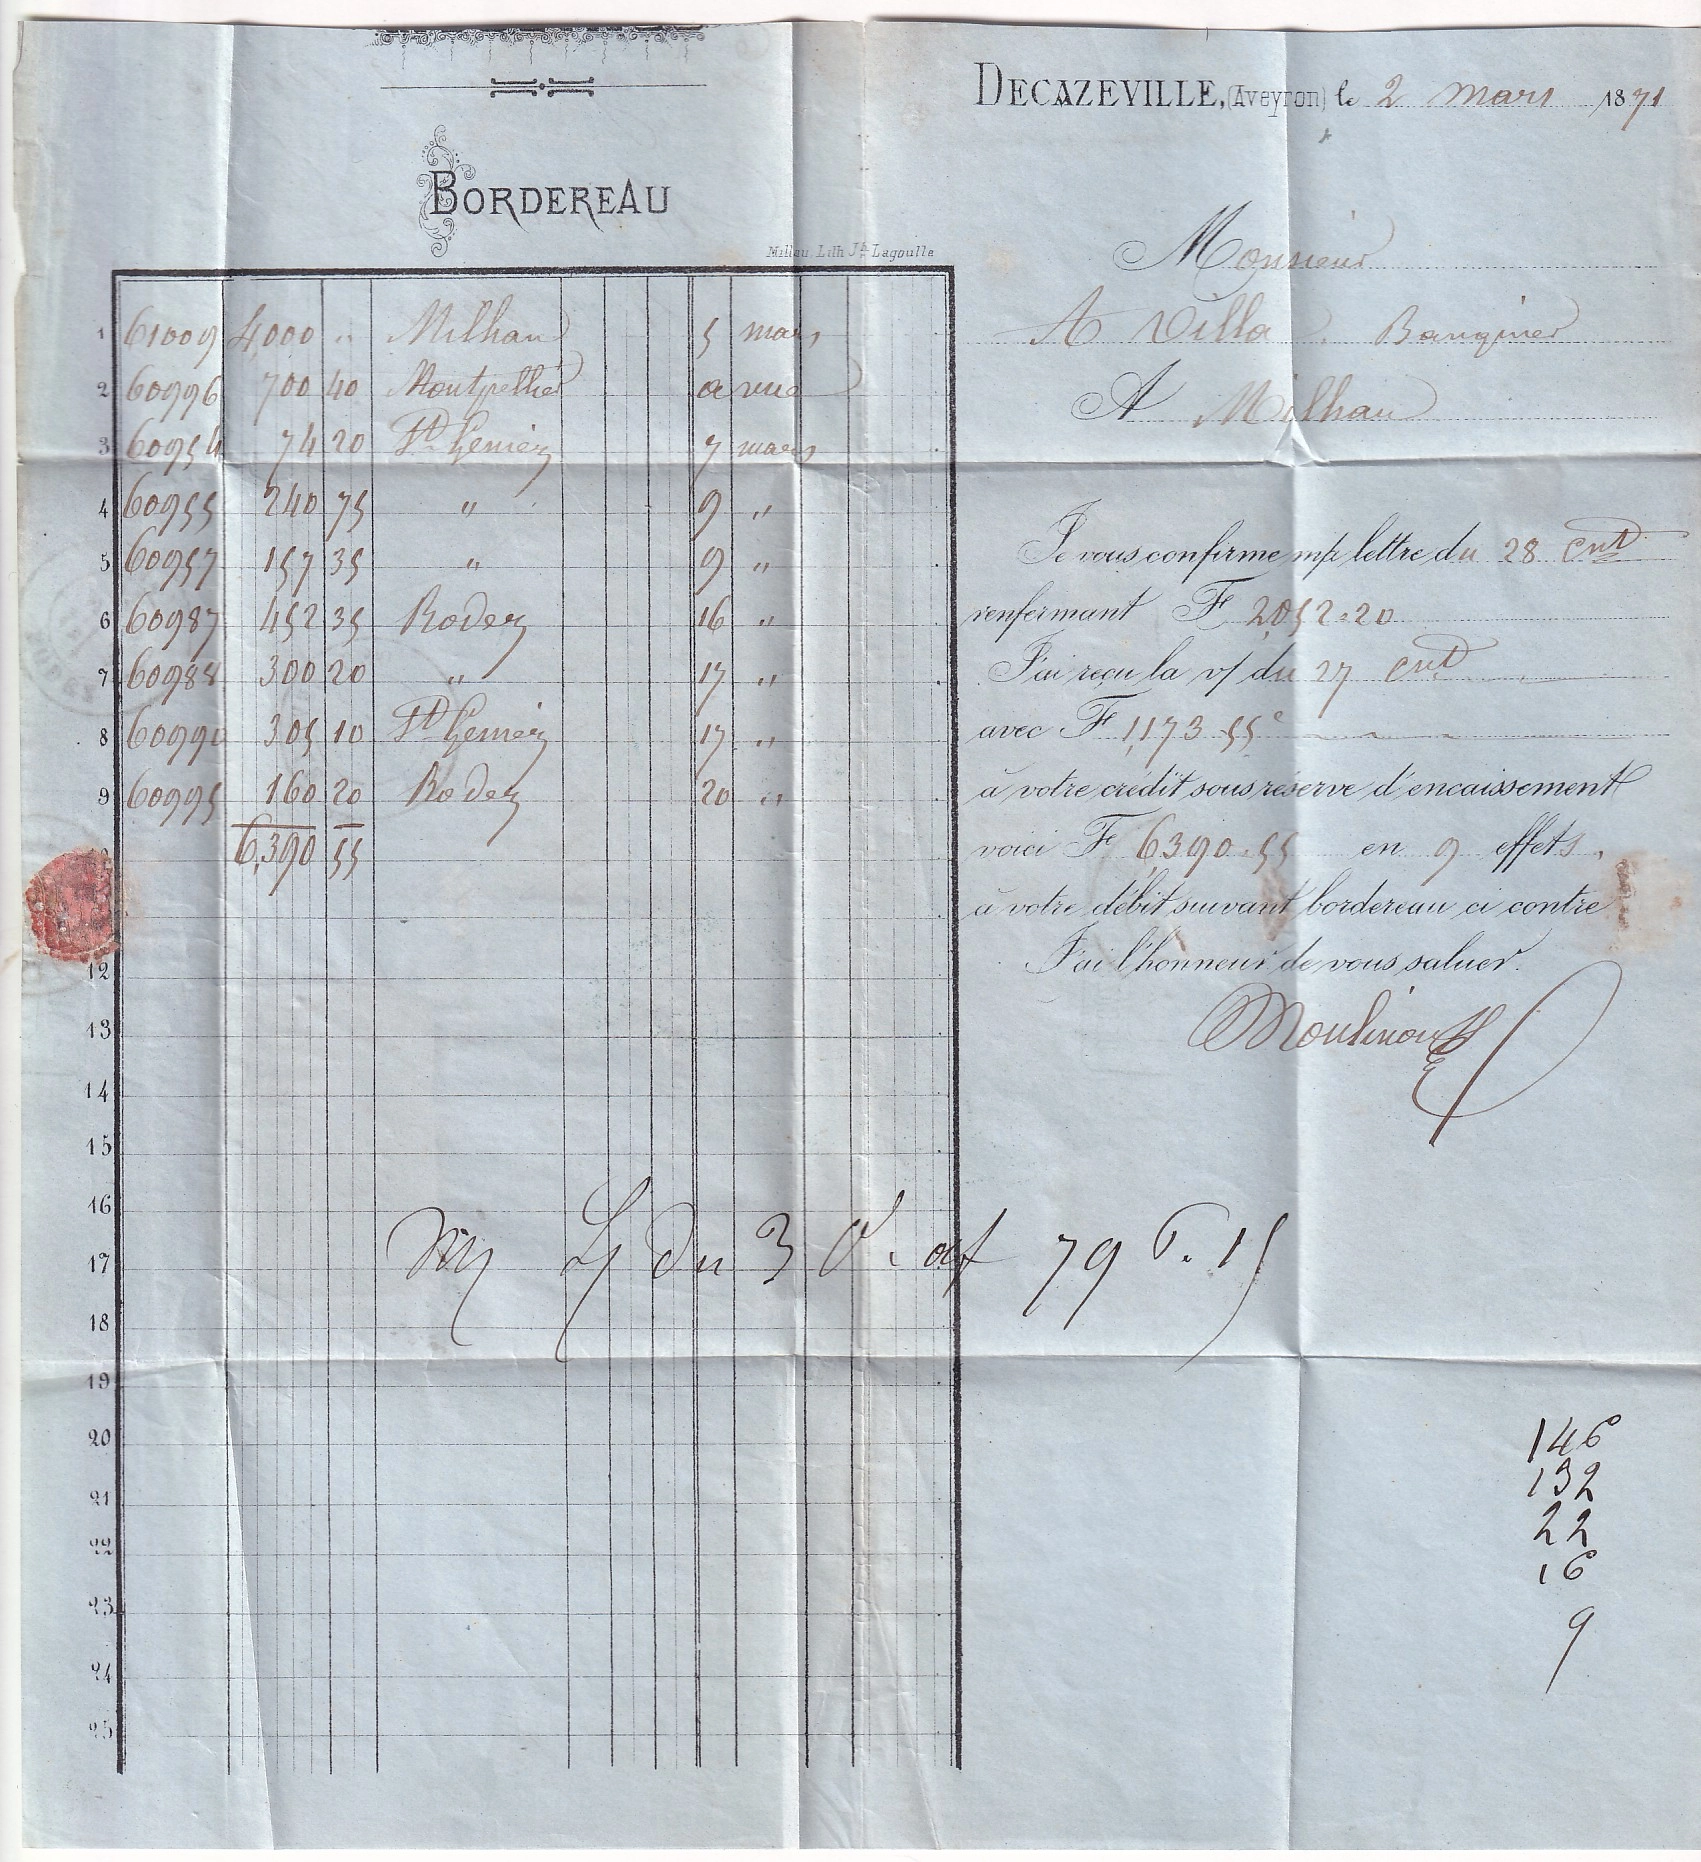 BORDEREAU
Millau. Lith. Jh Lagoutte
1 61009 4,000 " Milhau 5 mars
2 60996 700 40 Montpellier a vue
3 60954 74 20 St Geniez 7 mars
4 60955 240 75 " 9 "
5 60957 157 35 " 9 "
6 60987 452 35 Rodez 16 "
7 60988 300 20 " 17 "
8 60990 305 10 St Geniez 17 "
9 60995 160 20 Rodez 20 "
6,390 55
12
13
14
15
16
17
18
19
20
21
22
23
24
25
DECAZEVILLE, (Aveyron) le 2 mars 1871
Monsieur
A Villa. Banquier
A Milhau
Je vous confirme mp lettre du 28 Cnt
renfermant F 2,052.20
J'ai reçu la v/ du 27 Cnt
avec F 1,173 55c
à votre crédit sous réserve d'encaissement
voici F 6390.55 en 9 effets.
à votre débit suivant bordereau ci contre
J'ai l'honneur de vous saluer.
du 3 79 15
146
132
22
16
9